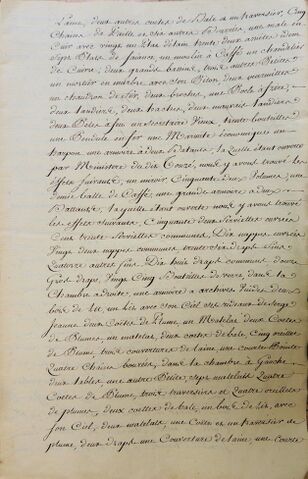 Laine, deux autres cuites de Bale a un traversier, Cinq
Chaises de Paille et six autres
Cuir avec vingt un Etat d'étain trente deux assiettes idem
Sept Plats de faiance, un moulin a Caffé un chandelier
de Cuivre, deux grands bassins, deux autres Petites
un mortier en marbre avec son Pilon, deux
un chaudron de fer, deux broches, une Poele a frire,
deux Landiers, deux haches, deux mauvais Landiers
deux Poeles a feu un secretaire Vieux, trente bouteilles
une Pendule en fer une Marmite économique un
harpon une armoire a deux Batans, la quelle étant ouverte
par Ministere du dit Couzé, nous y avons trouvé les
effets suivants, un miroir Cinquante deux Volumes, une
demie balle de Caffé, une grande armoire a deux
Battants, la quelle étant ouverte nous y avons trouvé
les effets suivants, Cinquante deux Serviettes ouvrées
Cent trente Serviettes communes, Dix nappes ouvrées
Vingt deux nappes communes, trente six draps fins
Quatorze autres fins, Dix huit draps communs douze
Gros draps, Vingt Cinq Bouteilles de verre dans la
Chambre a droite, une armoire a archives Vuides deux
bois de lit, un lit avec son Ciel et rideaux de serge
Jeaune deux Coetes de Plume, un Matelas deux Coetes
de Plumes, un matelas, deux coetes de bale, Cinq oreilles
de Plume, trois couvertures de laine, une courte Pointe
Quatre Chaises bourées, dans la chambre à Gauche
deux tables, une autre Petite, sept matelats Quatre
Coetes de Plume, trois traversiers et Quatre oreillers
de plumes, deux coettes de bale, un bois de lit, avec
son Ciel, deux matelats, une Coette et un traversier de
plume, deux draps une Couverture de laine, une Courte